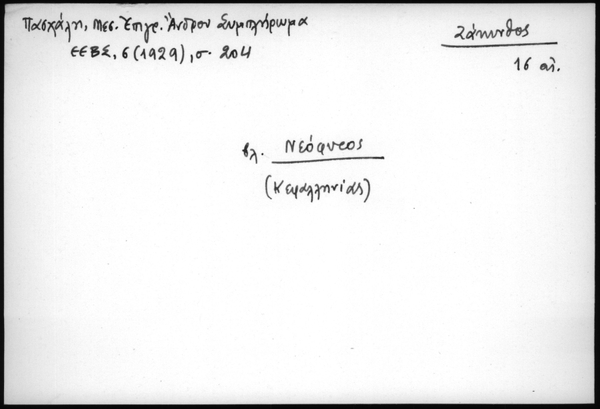 Πασχάλη, Μεσ. Ἐπιγρ. Ἄνδρου Συμπλήρωμα
ΕΕΒΣ, 6 (1929), σ. 204
Ζάκυνθος
16 αἰ.
βλ. Νεόφυτος
(Κεφαλληνίας)